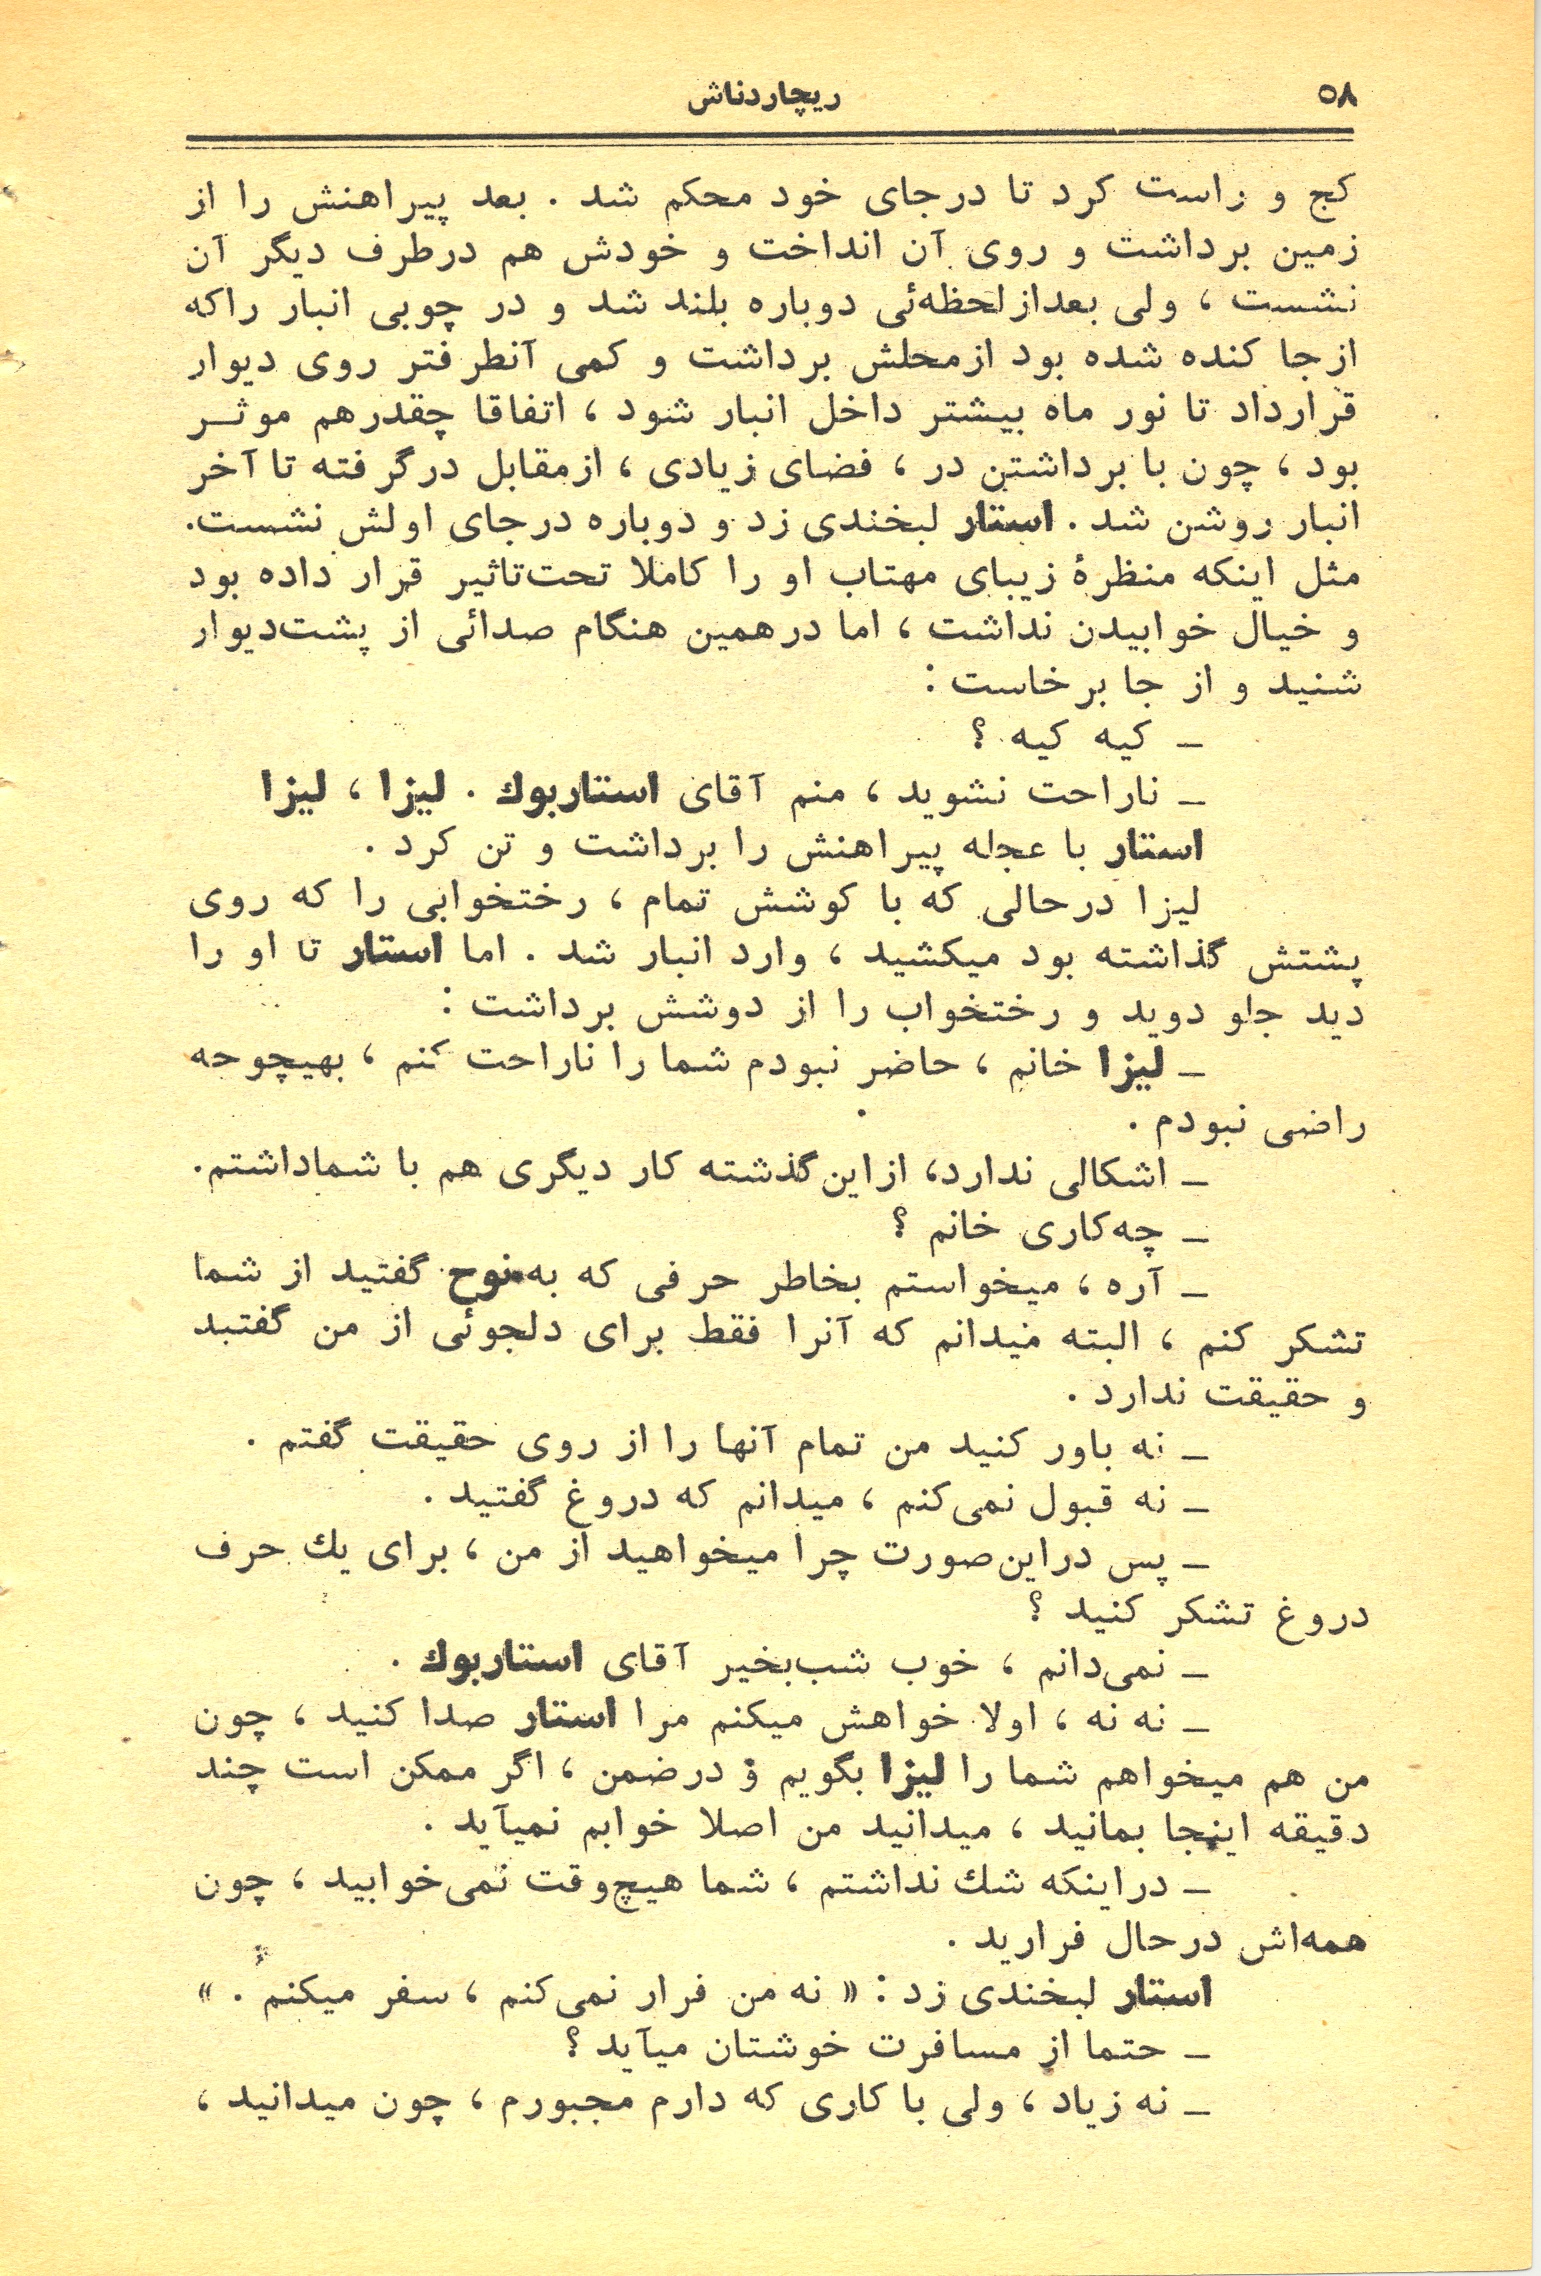 ۵۸
ریچاردناش
کج و راست کرد تا درجای خود محکم شد . بعد پیراهنش را از
زمین برداشت و روی آن انداخت و خودش هم درطرف دیگر آن
نشست ، ولی بعدازلحظه‌ئی دوباره بلند شد و در چوبی انبار راکه
ازجا کنده شده بود ازمحلش برداشت و کمی آنطرفتر روی دیوار
قرارداد تا نور ماه بیشتر داخل انبار شود ، اتفاقا چقدرهم موثـر
بود ، چون با برداشتن در ، فضای زیادی ، ازمقابل درگرفته تا آخر
انبار روشن شد . استار لبخندی زد و دوباره درجای اولش نشست.
مثل اینکه منظرهٔ زیبای مهتاب او را کاملا تحت‌تاثیر قرار داده بود
و خیال خوابیدن نداشت ، اما درهمین هنگام صدائی از پشت‌دیوار
شنید و از جا برخاست :
ـ کیه کیه ؟
ـ ناراحت نشوید ، منم آقای استاربوك . لیزا ، لیزا
استار با عجله پیراهنش را برداشت و تن کرد .
لیزا درحالی که با کوشش تمام ، رختخوابی را که روی
پشتش گذاشته بود میکشید ، وارد انبار شد . اما استار تا او را
دید جلو دوید و رختخواب را از دوشش برداشت :
ـ لیزا خانم ، حاضر نبودم شما را ناراحت کنم ، بهیچوحه
راضی نبودم .
ـ اشکالی ندارد، ازاین‌گذشته کار دیگری هم با شماداشتم.
ـ چه‌کاری خانم ؟
ـ آره ، میخواستم بخاطر حرفی که به نوح گفتید از شما
تشکر کنم ، البته میدانم که آنرا فقط برای دلجوئی از من گفتبد
و حقیقت ندارد .
ـ نه باور کنید من تمام آنها را از روی حقیقت گفتم .
ـ نه قبول نمی‌کنم ، میدانم که دروغ گفتید .
ـ پس دراین‌صورت چرا میخواهید از من ، برای یك حرف
دروغ تشکر کنید ؟
ـ نمی‌دانم ، خوب شب‌بخیر آقای استاربوك .
ـ نه نه ، اولا خواهش میکنم مرا استار صدا کنید ، چون
من هم میخواهم شما را لیزا بگویم و درضمن ، اگر ممکن است چند
دقیقه اینجا بمانید ، میدانید من اصلا خوابم نمیآید .
ـ دراینکه شك نداشتم ، شما هیچ‌وقت نمی‌خوابید ، چون
همه‌اش درحال فرارید .
استار لبخندی زد : « نه من فرار نمی‌کنم ، سفر میکنم . »
ـ حتما از مسافرت خوشتان میآید ؟
ـ نه زیاد ، ولی با کاری که دارم مجبورم ، چون میدانید ،